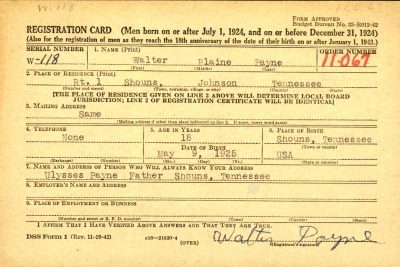 W-118
Form Approved
Budget Bureau No. 33-R012-42
REGISTRATION CARD (Men born on or after July 1, 1924, and on or before December 31, 1924)
(Also for the registration of men as they reach the 18th anniversary of the date of their birth on or after January 1, 1943.)
SERIAL NUMBER 1. NAME (Print) ORDER NUMBER
W-118 Walter Blaine Payne 11,067
(First) (Middle) (Last)
2. PLACE OF RESIDENCE (Print)
Rt. 1 Shouns, Johnson Tennessee
(Number and street) (Town, township, village, or city) (County) (State)
[THE PLACE OF RESIDENCE GIVEN ON LINE 2 ABOVE WILL DETERMINE LOCAL BOARD
JURISDICTION; LINE 2 OF REGISTRATION CERTIFICATE WILL BE IDENTICAL]
3. MAILING ADDRESS
Same
[Mailing address if other than place indicated on line 2. If same, insert word same]
4. TELEPHONE 5. AGE IN YEARS 6. PLACE OF BIRTH
None 18 Shouns, Tennessee
DATE OF BIRTH (Town or county)
May 9, 1925 USA
(Exchange) (Number) (Mo.) (Day) (Yr.) (State or country)
7. NAME AND ADDRESS OF PERSON WHO WILL ALWAYS KNOW YOUR ADDRESS
Ulysses Payne Father Shouns, Tennessee
8. EMPLOYER'S NAME AND ADDRESS
9. PLACE OF EMPLOYMENT OR BUSINESS
(Number and street or R. F. D. number) (Town) (County) (State)
I AFFIRM THAT I HAVE VERIFIED ABOVE ANSWERS AND THAT THEY ARE TRUE.
DSS Form 1 (Rev. 11-16-42) 16-21630-4 (OVER) Walter Payne
(Registrant's signature)